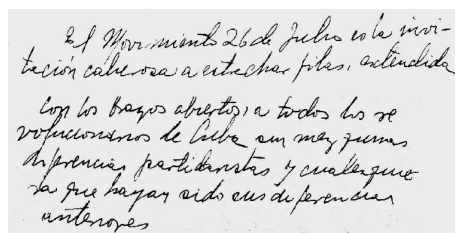 El Movimiento 26 de Julio es la invi-
tación calurosa a estrechar filas, extendida
con los brazos abiertos, a todos los re
volucionarios de Cuba sin mezquinas
diferencias partidaristas y cualesquie
ra que hayan sido sus diferencias
anteriores